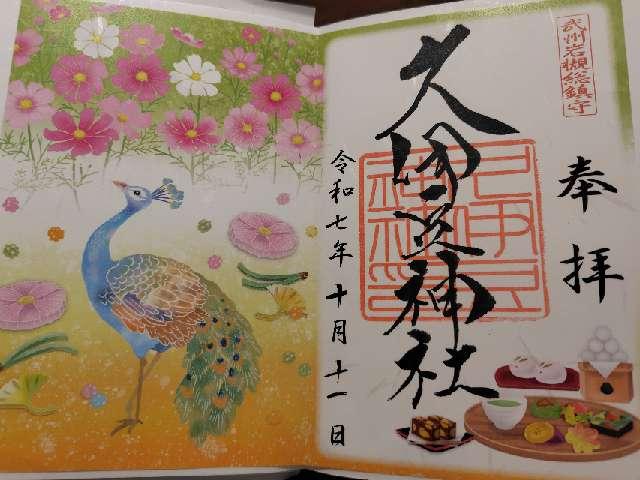 武州岩槻総鎮守
奉拝
久伊豆神社
令和七年十月十一日